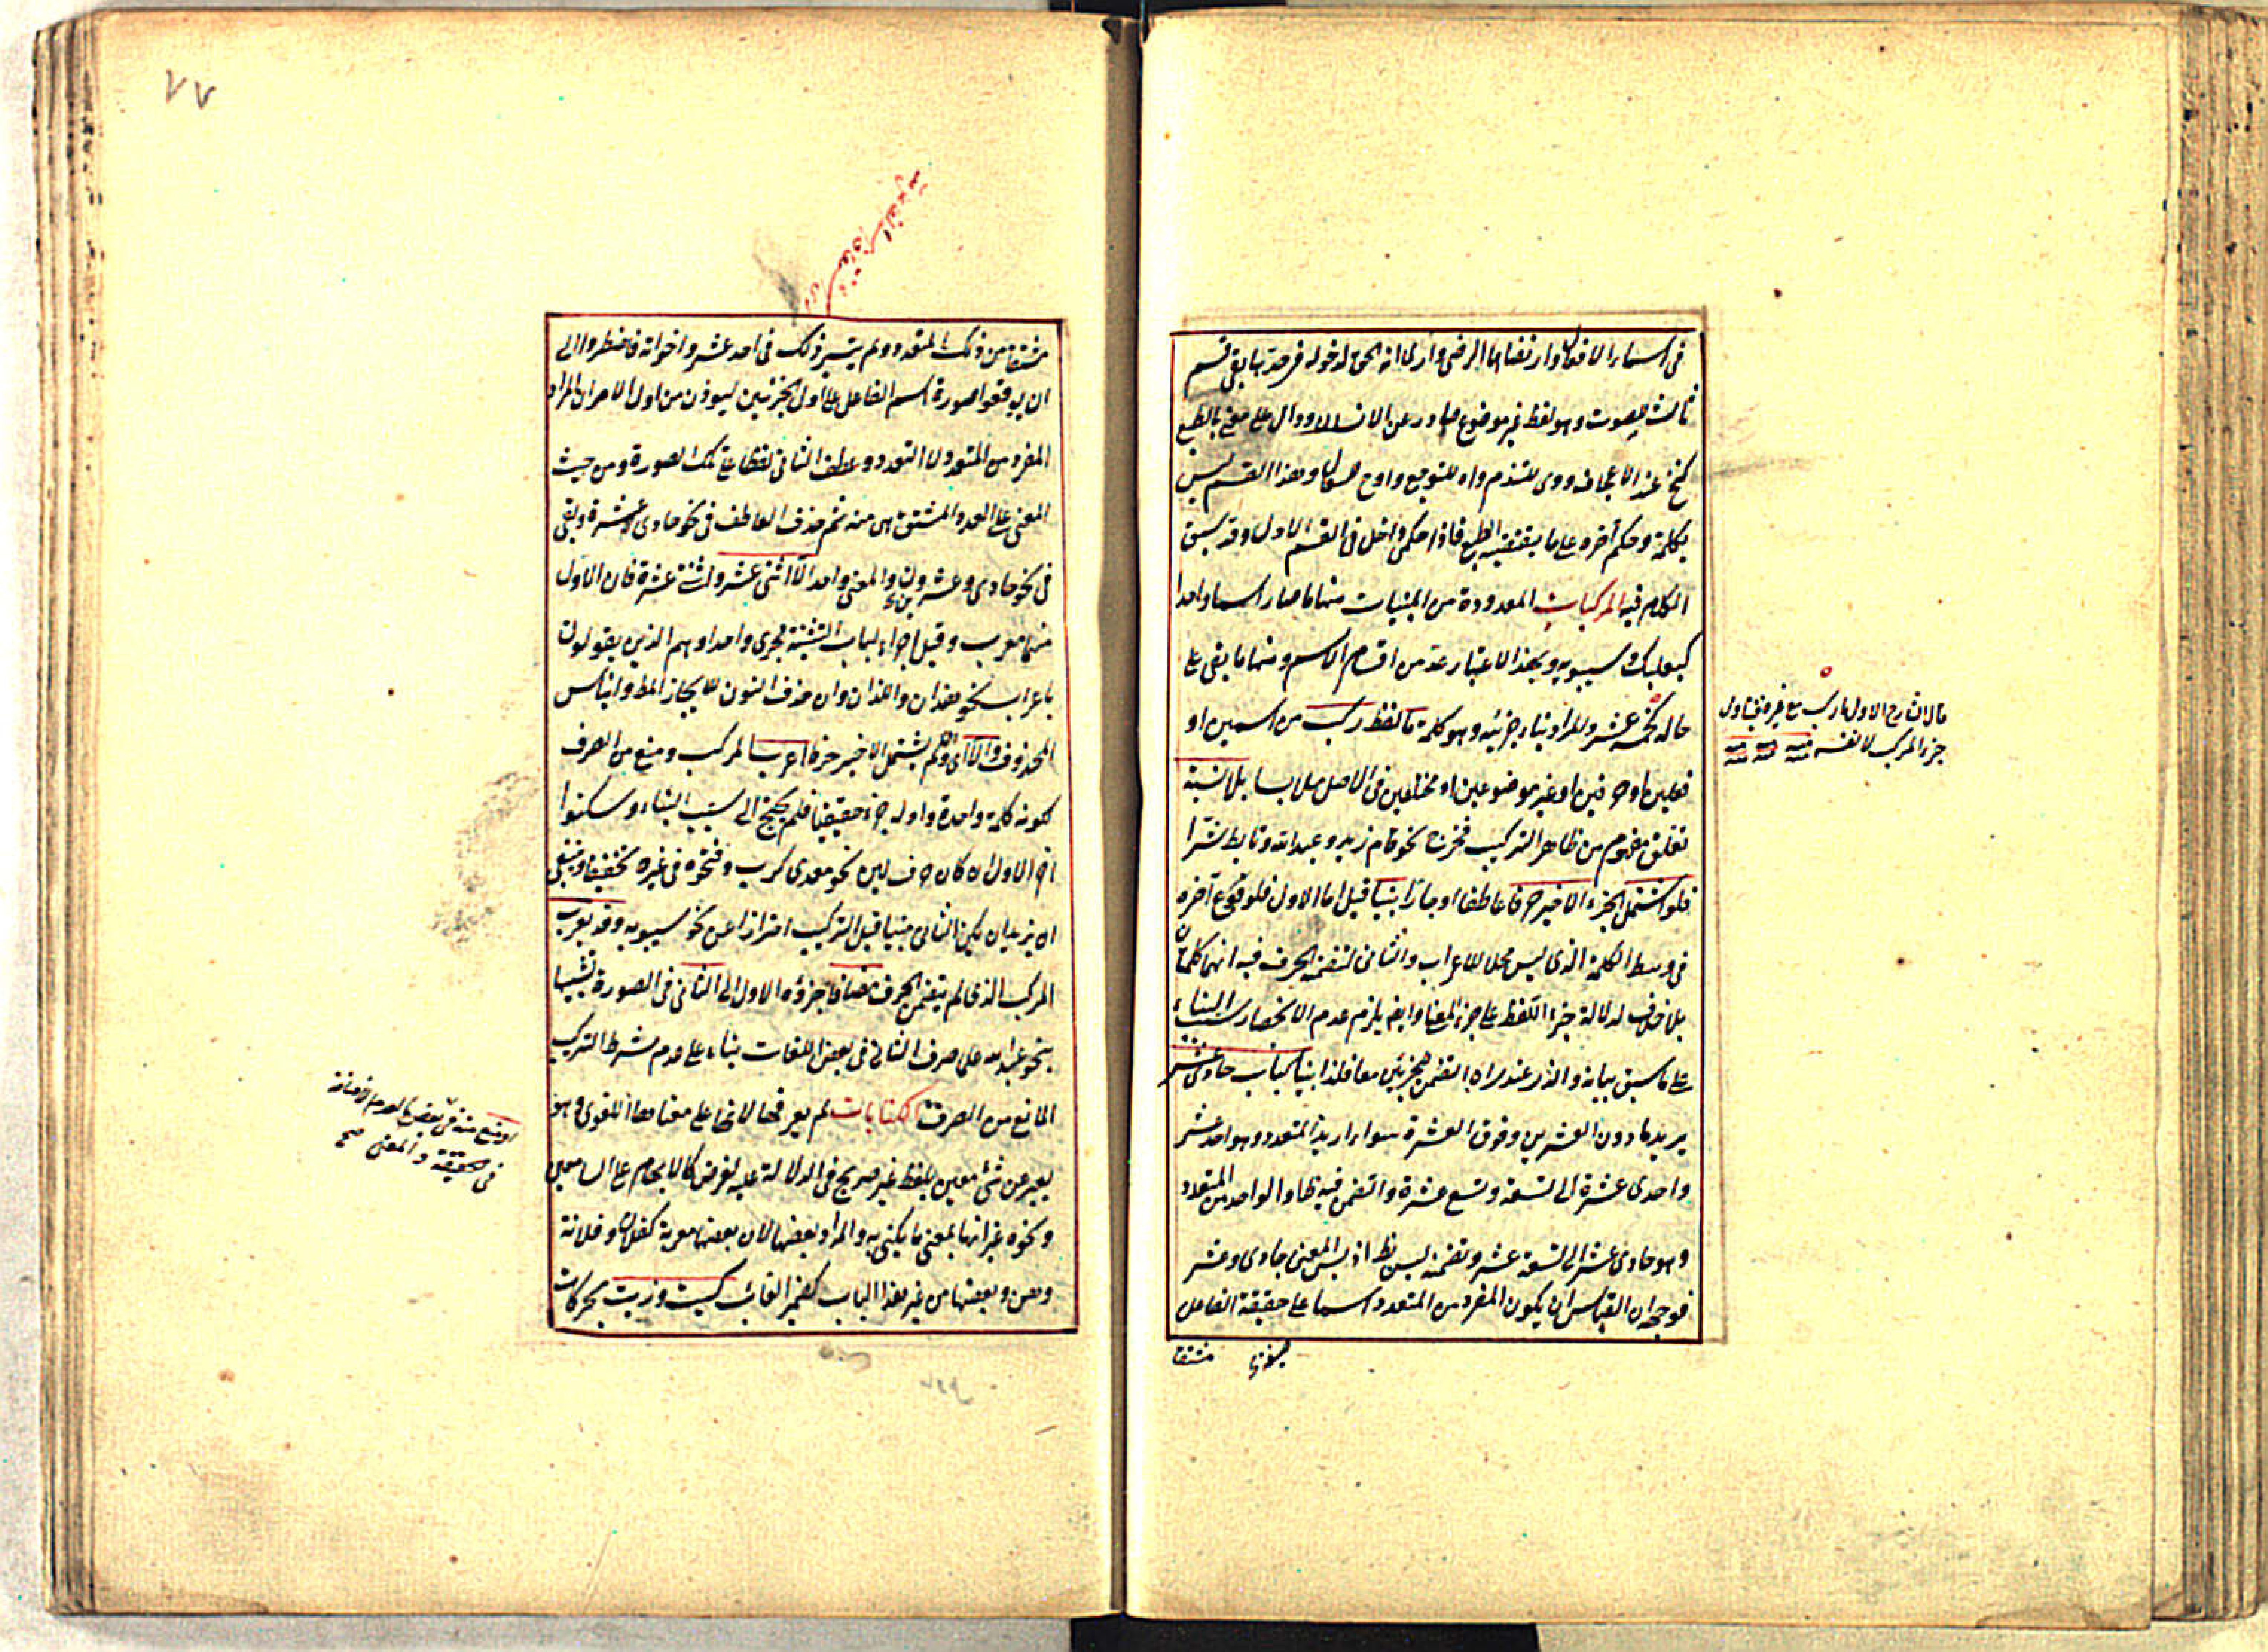 في اسماء الافعال وارتضاها الرضي وارى انه الحق لدخوله في حدها بقي قسم
ثالث للصوت وهو لفظ غير موضوع صادر عن الانسان ودال على معنى بالطبع
كأخ عند الاعجاف ووى للتندم واه للتوجع واوح للسعال وهذا القسم ليس
بكلمة وحكم آخره على ما يقتضيه الطبع فاذا حكى داخل في القسم الاول وقد سبق
الكلام فيه المركبات المعدودة من المبنيات منها ما صار اسما واحدا
كبعلبك وسيبويه وبهذا الاعتبار عد من اقسام الاسم ومنها ما بقى على
حاله كخمسة عشر والمراد بناء جزئيه وهو كلمة كلفظ ركب من اسمين او
فعلين او حرفين او غير موضوعين او مختلفين في الاصل ملابسا بلا نسبة
تعلق مفهوم من ظاهر التركيب فخرج نحو قام زيد وعبد الله وتابط شرا
فلو اشتمل الجزء الاخير حرفا عاطفا او جارا بنيا قيل اما الاول فلوقوع آخره
في وسط الكلمة الذي ليس محل للاعراب والثاني لتضمنه الحرف فيه انهما كلمتان
بلا خلاف لدلالة جزء اللفظ على جزء المعنى وايضا يلزم عدم الانحصار سبب البناء
على ما سبق بيانه والذي عندي انه التضمن للجزئين معا فلذا بنيا كباب حادي عشر
يريد ما دون العشرين وفوق العشرة سواء اريد المتعدد وهو احد عشر
واحدى عشرة الى تسعة وتسع عشرة والتضمن فيه ظاهر او الواحد من المتعدد
وهو حادي عشر الى تسعة عشر وتضمنه ليس بظ اذ ليس المعنى حادي وعشر
فوجه ان القياس ان يكون المفرد من المتعدد اسما على حقيقة الفاعل
مشتقا
قال الشارح الاول ما ركب مع غيره فتناول
جزء المركب لا نفسه منه
٧٧
مشتقا من ذلك المتعدد ولم يتيسر ذلك في احد عشر واخواته فاضطروا الى
ان يوقعوا صورة اسم الفاعل على اول الجزئين ليؤذن من اول الامر ان المراد
المفرد من المتعدد لا المتعدد وعطف الثاني لفظا على تلك الصورة ومن حيث
المعنى على العدد المشتق هي منه ثم حذف العاطف في نحو حادي عشرة وبقى
في نحو حادي وعشرون والمعنى واحد الا اثنى عشر واثنتى عشرة فان الاول
منهما معرب وقيل اجراء لباب التثنية مجرى واحدا وهم الذين يقولون
باعراب نحو هذان واللذان وان حذف النون للايجاز المط وانباس
المحذوف والا اى وان لم يشتمل الاخير حرفا اعرب المركب ومنع من الصرف
لكونه كلمة واحدة واوله جزء حقيقيا فلم يحتج الى سبب البناء وسكنوا
آخر الاول ان كان حرف لين نحو معدي كرب وفتحوه في غيره تخفيفا وينبغي
ان يزيد ان يكن الثاني مبنيا قبل التركيب احترازا عن نحو سيبويه وقد يعرب
المركب الذي لم يتضمن الحرف مضافا جزؤه الاول الى الثاني في الصورة تشبيها
بنحو عبد الله على صرف الثاني في بعض اللغات بناء على عدم شرط التركيب
المانع من الصرف الكنايات لم يعرفها لانها على معناها اللغوي وهو
يعبر عن شئ معين بلفظ غير صريح في الدلالة عليه لغرض كالابهام على السامعين
ونحوه غير انها بمعنى ما يكنى به والمراد بعضها لان بعضها معربة كفلان وفلانة
وهن وبعضها من غير هذا الباب كضمير الغائب كيت وذيت بحركات
في حقيقة والمعنى صح